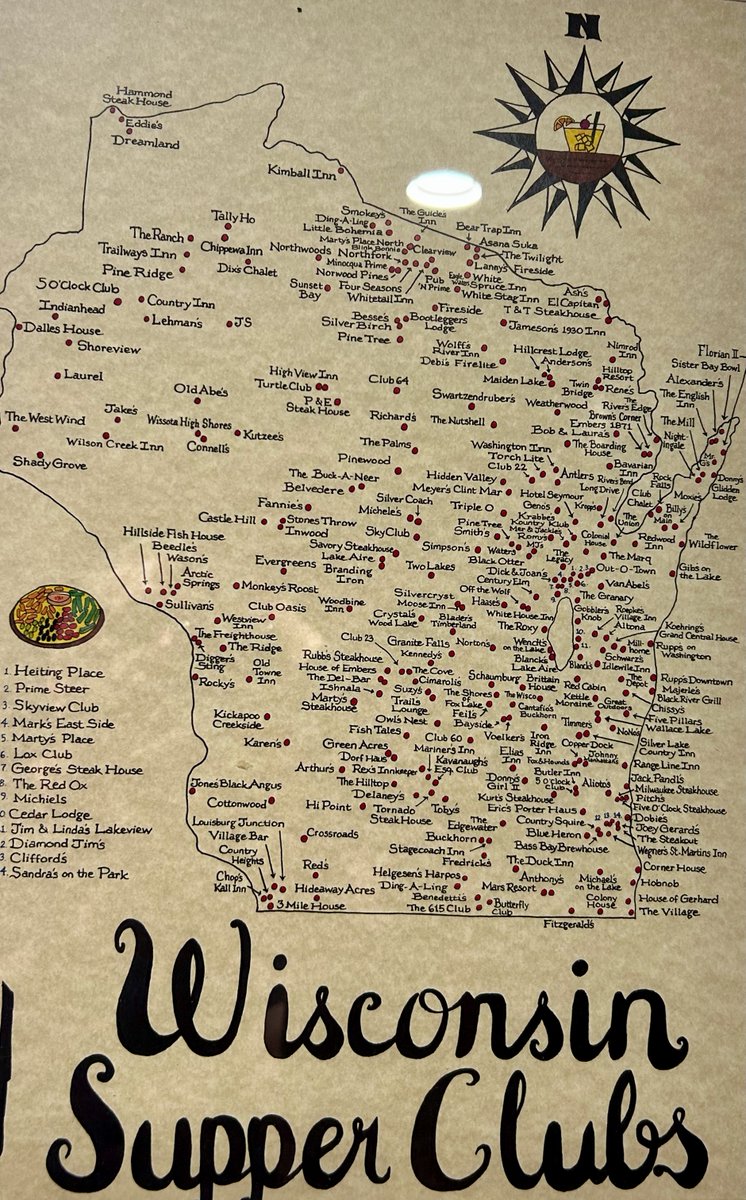 N
Hammond
Steak House
Eddie's
Dreamland
Kimball Inn
Tally Ho
The Ranch
Chippewa Inn
Trailways Inn
Pine Ridge
Dixs Chalet
Smokey's
Ding-A-Ling
Little Bohemia
The Guide's
Inn
Bear Trap Inn
Marty's Place North
Clearview
Asana Suka
The Twilight
Northwoods
Northfork
Minocqua Prime
Lanny's Fireside
Norwood Pines
Pub
'N Prime
Eagle
White
Spruce Inn
Sunset
Bay
Four Seasons
Whitetail Inn
White Stag Inn
Ash's
El Capitan
T & T Steakhouse
5 O'Clock Club
Indianhead
Country Inn
Dalles House
Lehman's
JS
Shoreview
Besse's
Silver Birch
Pine Tree
Fireside
Bootleggers
Lodge
Jameson's 1930 Inn
Wolff's
River Inn
Debi's Firelite
Hillcrest Lodge
Andersons
Nimrod
Inn
Maiden Lake
Hilltop
Resort
Twin
Bridge
Rene's
Florian II
Sister Bay Bowl
Alexander's
The English
Inn
The Mill
Night-
ingale
Mr.
G's
Donny's
Glidden
Lodge
Laurel
Old Abe's
High View Inn
Turtle Club
P & E
Steak House
Club 64
Swartzendruber's
Weatherwood
The
River's Edge
Brown's Corner
Embers 1871
Bob & Laura's
The Boarding
House
Bavarian
Inn
The West Wind
Jake's
Wissota High Shores
Kutzee's
Wilson Creek Inn
Connell's
Shady Grove
Richard's
The Nutshell
The Palms
Pinewood
Washington Inn
Torch Lite
Club 22
Antlers
River's Bend
Long Drive
Rock
Falls
Club
Chalet
Moxie's
Billy's
on
Main
The Buck-A-Neer
Belvedere
Hidden Valley
Meyer's Clint Mar
Hotel Seymour
Geno's
Krabbe's
Kountry Klub
The
Union
Redwood
Inn
The
Wildflower
Fannies
Silver Coach
Michele's
Triple O
Castle Hill
Stones Throw
Inwood
Sky Club
Pine Tree
Smith's
Mar & Jackie's
Romy's
MJ's
Colonial
House
Hillside Fish House
Beedle's
Wason's
Arctic
Springs
Savory Steakhouse
Lake Aire
Branding
Iron
Evergreens
Simpson's
Two Lakes
Waters
Black Otter
The
Legacy
The Marq
Out-O-Town
Gibs on
the Lake
Dick & Joan's
Century Elm
Off the Wolf
VanAbel's
The Granary
Monkey's Roost
Sullivan's
Club Oasis
Woodbine
Inn
Silvercryst
Moose Inn
Haase's
White House Inn
Gobbler's
Knob
Roepke's
Village Inn
Altona
Koehring's
Grand Central House
Westview
Inn
The Freighthouse
The Ridge
Crystal's
Wood Lake
Blader's
Timberland
The Roxy
Mill-
home
Rupp's on
Washington
Digger's
Sting
Old
Towne
Inn
Rocky's
Club 23
Granite Falls
Kennedy's
Norton's
Wendt's
on the Lake
Blanck's
Lake Aire
Schwarz's
Idlewile Inn
Rubb's Steakhouse
House of Embers
The Del-Bar
Ishnala
Marty's
Steakhouse
The Cove
Cimaroli's
Schaumburg
Brittain
House
Red Cabin
The
Depot
Rupp's Downtown
Majerle's
Black River Grill
Suzy's
Trail's
Lounge
The Shores
of
Fox Lake
The Wisco
Kettle
Moraine
Great
Outdoors
Chissy's
Five Pillars
Wallace Lake
Kickapoo
Creekside
Owl's Nest
Feil's
Bayside
Cantafio's
Buckhorn
Timmers
NoNo's
Karen's
Fish Tales
Green Acres
Dorf Haus
Club 60
Mariner's Inn
Voelker's
Iron
Ridge
Inn
Silver Lake
Country Inn
Copper Dock
Arthur's
Rex's Innkeeper
The Hilltop
Kavanaugh's
Esq. Club
Elias
Inn
Fox & Hounds
Johnny
Manhattan's
Range Line Inn
Jones' Black Angus
Cottonwood
Hi Point
Delaney's
Tornado
Steak House
Toby's
Donny's
Girl II
Butler Inn
5 O'Clock
Club
Alioto's
Jack Pandl's
Milwaukee Steakhouse
Pitch's
Five O'Clock Steakhouse
Kurt's Steakhouse
Eric's Porter Haus
Louisburg Junction
Village Bar
Country
Heights
Crossroads
The
Edgewater
Country Squire
Blue Heron
Dobie's
Joey Gerard's
The Steakout
Wegner's St. Martins Inn
Buckhorn
Stagecoach Inn
Fredrick's
Bass Bay Brewhouse
Chop's
Kall Inn
Red's
Hideaway Acres
3 Mile House
The Duck Inn
Corner House
Helgesen's Harpos
Ding-A-Ling
Benedetti's
The 615 Club
Anthony's
Mars Resort
Butterfly
Club
Michael's
on the Lake
Colony
House
Hobnob
House of Gerhard
The Village
Fitzgerald's
1. Heiting Place
2. Prime Steer
3. Skyview Club
4. Mark's East Side
5. Marty's Place
6. Lox Club
7 George's Steak House
8. The Red Ox
9. Michiels
0 Cedar Lodge
1 Jim & Linda's Lakeview
2 Diamond Jim's
3 Clifford's
4. Sandra's on the Park
Wisconsin
Supper Clubs